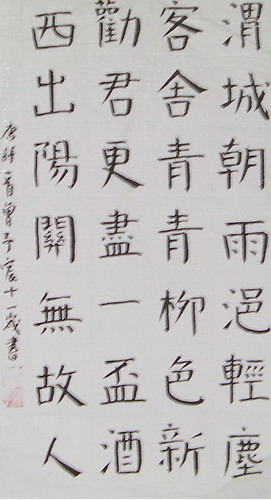 渭城朝雨浥輕塵
客舍青青柳色新
勸君更盡一盃酒
西出陽關無故人
唐詩一首曾子宸十一歲書